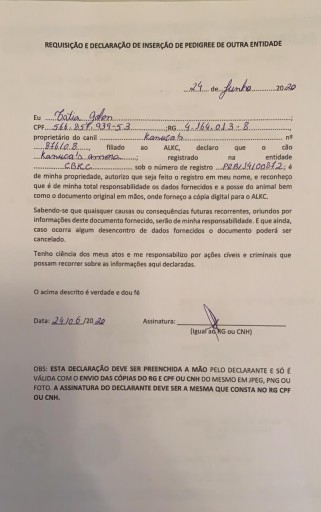 REQUISIÇÃO E DECLARAÇÃO DE INSERÇÃO DE PEDIGREE DE OUTRA ENTIDADE
24 de Junho 2020
Eu Katia
CPF 566.857.939-53 ;RG 4.164.013-8
proprietário do canil Kanuca's nº
, filiado ao ALKC, declaro que o cão
Kanuca's ; registrado na entidade
CBKC sob o número de registro ; é
de minha propriedade, autorizo que seja feito o registro em meu nome, e reconheço
que é de minha total responsabilidade os dados fornecidos e a posse do animal bem
como o documento original em mãos, onde forneço a cópia digital para o ALKC.
Sabendo-se que quaisquer causas ou consequências futuras recorrentes, oriundos por
informações deste documento fornecido, serão de minha responsabilidade. E que ainda,
caso ocorra algum desencontro de dados fornecidos o documento poderá ser
cancelado.
Tenho ciência dos meus atos e me responsabilizo por ações cíveis e criminais que
possam recorrer as informações aqui declaradas.
O acima descrito é verdade e dou fé
Data: 24/06/2020 Assinatura:
(Igual ao RG ou CNH)
OBS: ESTA DECLARAÇÃO DEVE SER PREENCHIDA A MÃO PELO DECLARANTE E SÓ É
VÁLIDA COM O ENVIO DAS CÓPIAS DO RG E CPF OU CNH DO MESMO EM JPEG, PNG OU
FOTO. A ASSINATURA DO DECLARANTE DEVE SER A MESMA QUE CONSTA NO RG CPF
OU CNH.